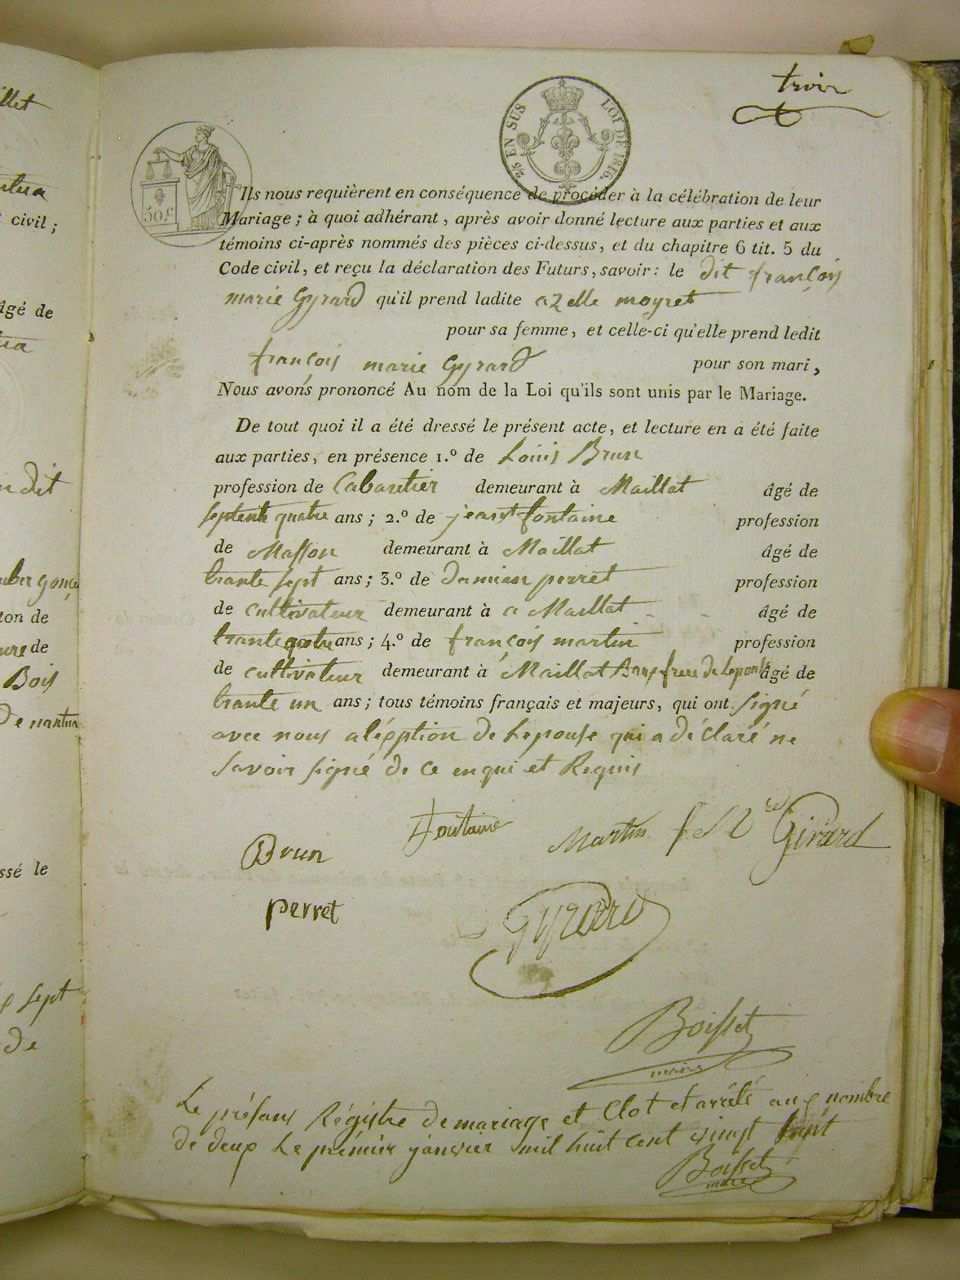 trois
25 EN SUS LOI DE 1816.
50 C.
Ils nous requièrent en conséquence de procéder à la célébration de leur
Mariage ; à quoi adhérant , après avoir donné lecture aux parties et aux
témoins ci-après nommés des pièces ci-dessus, et du chapitre 6 tit. 5 du
Code civil, et reçu la déclaration des Futurs, savoir : le dit françois
marie Gyrard qu'il prend ladite azelle moyret
pour sa femme, et celle-ci qu'elle prend ledit
françois marie Gyrard pour son mari,
Nous avons prononcé Au nom de la Loi qu'ils sont unis par le Mariage.
De tout quoi il a été dressé le présent acte, et lecture en a été faite
aux parties, en présence 1.º de Louis Brun
profession de Cabartier demeurant à Maillat âgé de
septente quatre ans ; 2.º de fontaine profession
de Masson demeurant à Maillat âgé de
trante sept ans ; 3.º de damien perret profession
de cultivateur demeurant à a Maillat âgé de
trante quatre ans ; 4.º de françois martin profession
de cultivateur demeurant à Maillat frere de Lepouse âgé de
trante un ans ; tous témoins français et majeurs, qui ont signé
avec nous a léxption de Lepouse qui a déclaré ne
savoir signé de ce enqui et Requis
Fontaine Martin Girard
Brun
perret
Gyrard
Boisset
maire
Le présans Régistre de mariage et Clot et arrété au nombre
de deux Le premier janvier mil huit cent vingt sept
Boisset
maire
illet
civil ;
âgé de
dit
ton de
ure de
Bois
de nantua
ssé le
sept
de